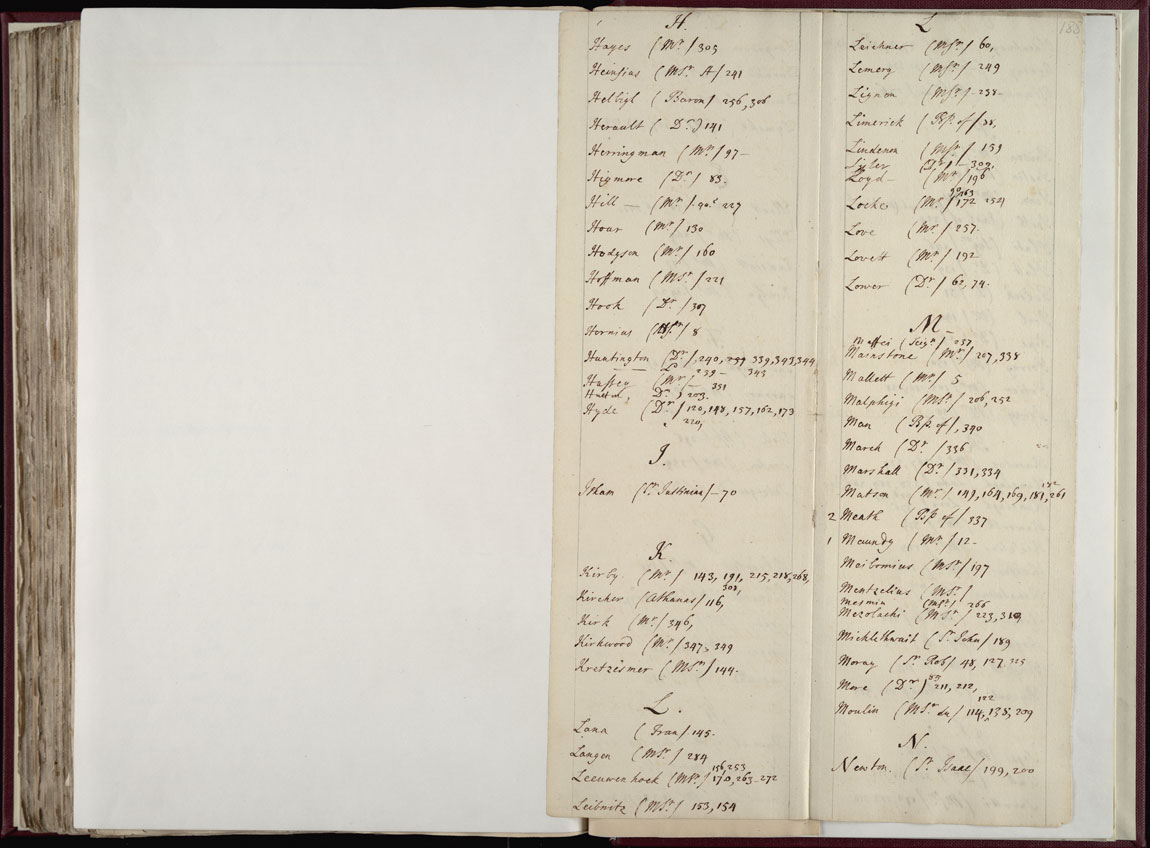 H.
Hayes (Mr.) 305
Heinsius (Msr. A) 241
Helbigh (Baron) 256, 306
Herault (Dr.) 141
Herringman (Mr.) 97 -
Higmore (Dr.) 83.
Hill - (Mr.) 227
Hoar (Mr.) 130
Hodgson (Mr.) 160
Hoffman (Msr.) 221
Hook (Dr.) 307
Hornius (Msr.) 8
Huntington (Dr.) 240, 339, 343, 344
239 - 343
Hussey (Mr.) - 351
Dr.) 203.
Hyde (Dr.) 120, 148, 157, 162, 173
220,
I.
Isham (Sr. Justinian) - 70
K.
Kirby (Mr.) 143, 191, 215, 218, 268,
308,
Kircher (Athanas) 116,
Kirk (Mr.) 346,
Kirkwood (Mr.) 347, 349
Kretzismer (Msr.) 144 -
L.
Lana (Fran) 145 -
Langen (Msr.) 284
156, 253
Leeuwenhoek (Mr.) 170, 263 - 272
Leibnitz (Msr.) 153, 154
188
L
Leichner (Msr.) 60,
Lemery (Msr.) 249
Lignon (Msr.) 238 -
Limerick (Bp. of) 38,
Lindenon (Msr.) 159
Lister (Dr.) - 309.
Loyd - (Mr.) 196
90, 163
Locke (Mr.) 172 252
Love (Mr.) 257 -
Lovett (Mr.) 192
Lower (Dr.) 62, 74 -
M -
Maffei (Seigr.) 237
Mainstone (Mr.) 207, 338
Mallett (Mr.) 5
Malphigi (Msr.) 206, 252
Man (Bp. of), 340
March (Dr.) 336
Marshall (Dr.) 331, 334
182
Matson (Mr.) 149, 164, 169, 181, 261
2 Meath (Bp. of) 337
1 Maundy (Mr.) 12 -
Meibomius (Msr.) 197
Mentzelius (Msr.)
Mesmin (Msr.) 266
Mezolaski (Msr.) 223, 310
Micklethwait (Sr. John) 189
Moray (Sr. Rob) 48, 127
More (Dr.) 211, 212,
122
Moulin (Msr. du) 114, 138, 209
N.
Newton. (Sr. Isaac) 199, 200